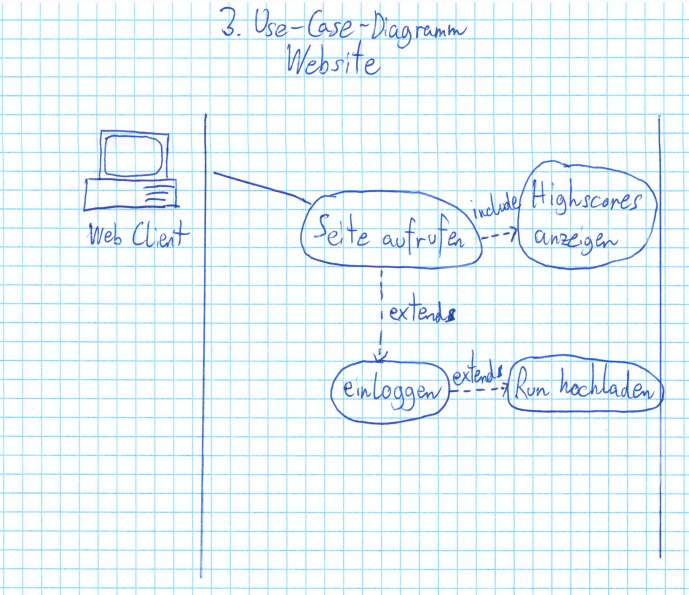 3. Use-Case-Diagramm
Website
Web Client
Seite aufrufen
include
Highscores
anzeigen
extends
einloggen
extends
Run hochladen